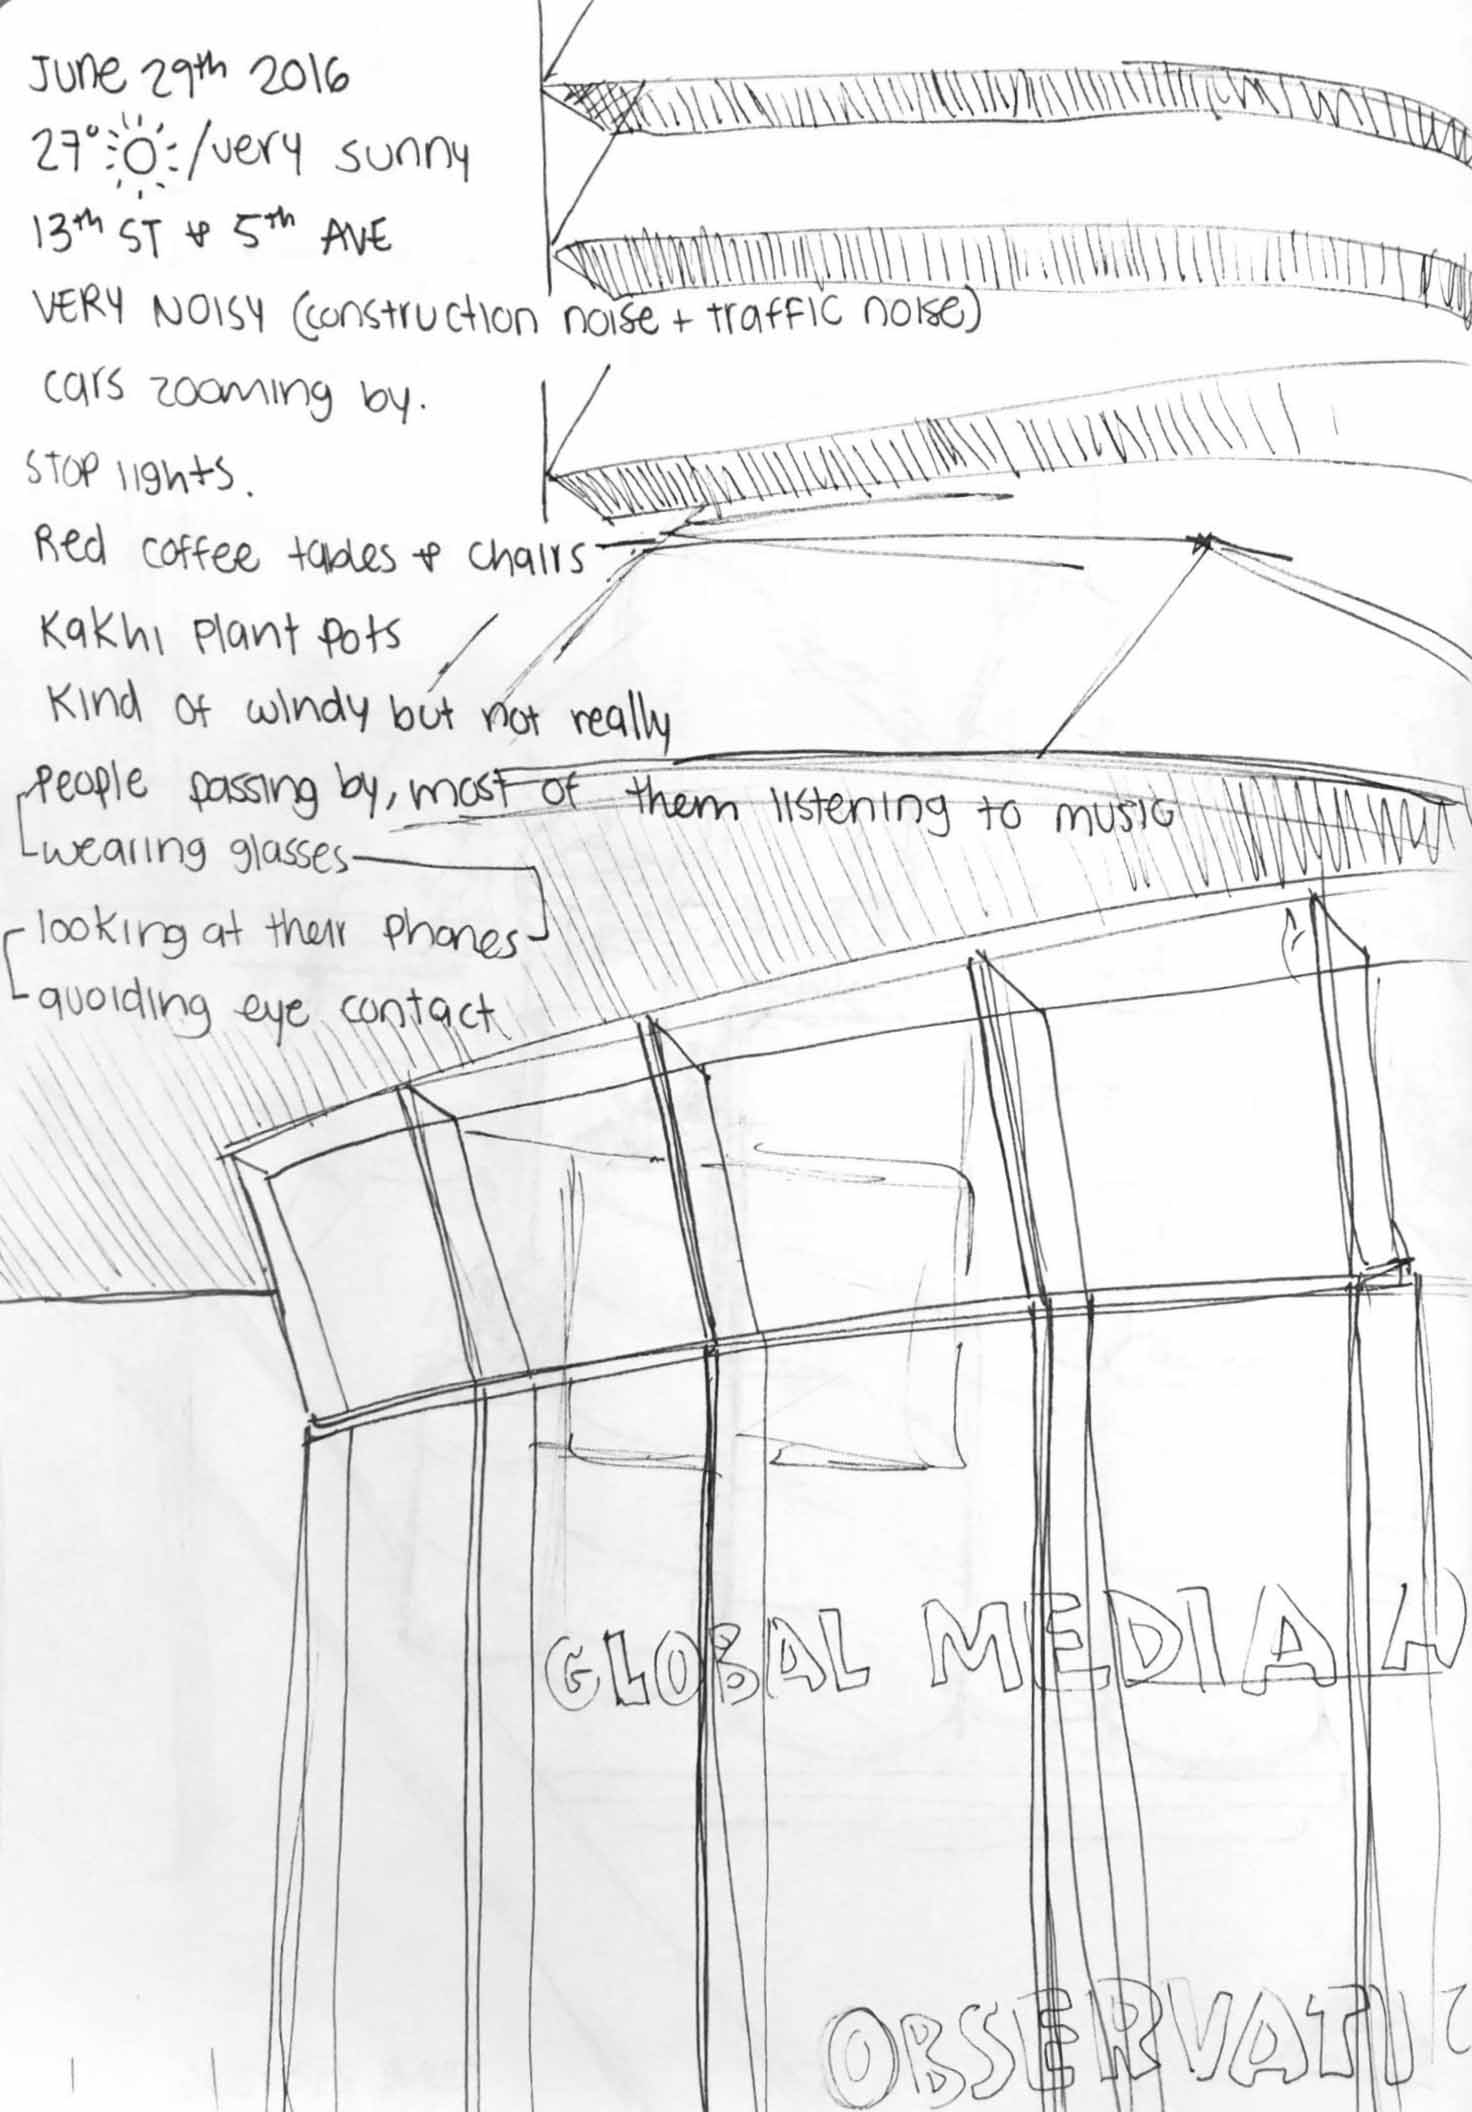 June 29th 2016
27° /very sunny
13th ST & 5th AVE
VERY NOISY (construction noise + traffic noise)
cars zooming by.
STOP lights.
Red coffee tables & chairs
Kakhi plant pots
Kind of windy but not really
People passing by, most of them listening to music
wearing glasses
looking at their phones
avoiding eye contact
GLOBAL MEDIA
OBSERVATI